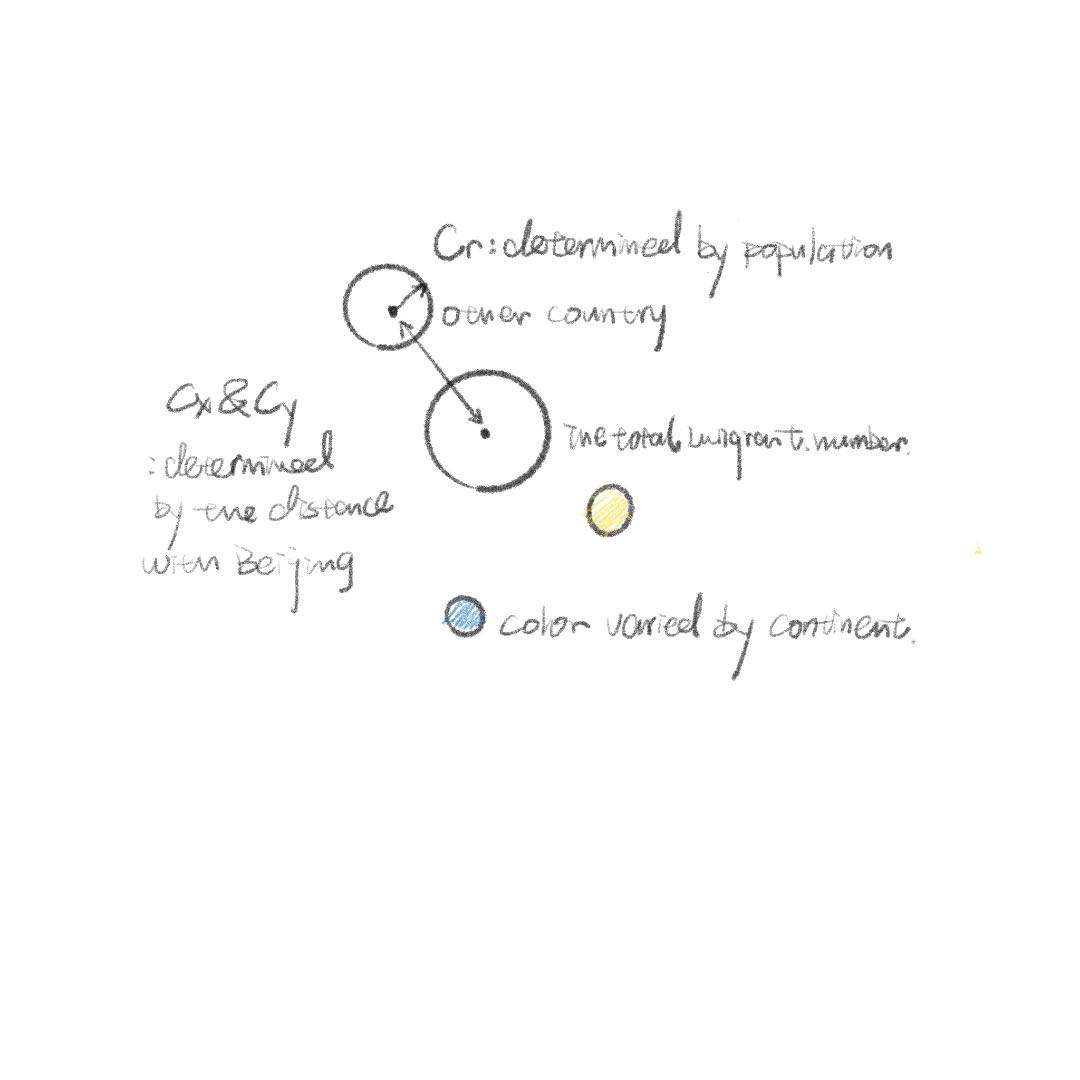 Cr: determined by population
other country
Cx & Cy
: determined
by the distance
with Beijing
the total imigrant. number.
color varied by continent.